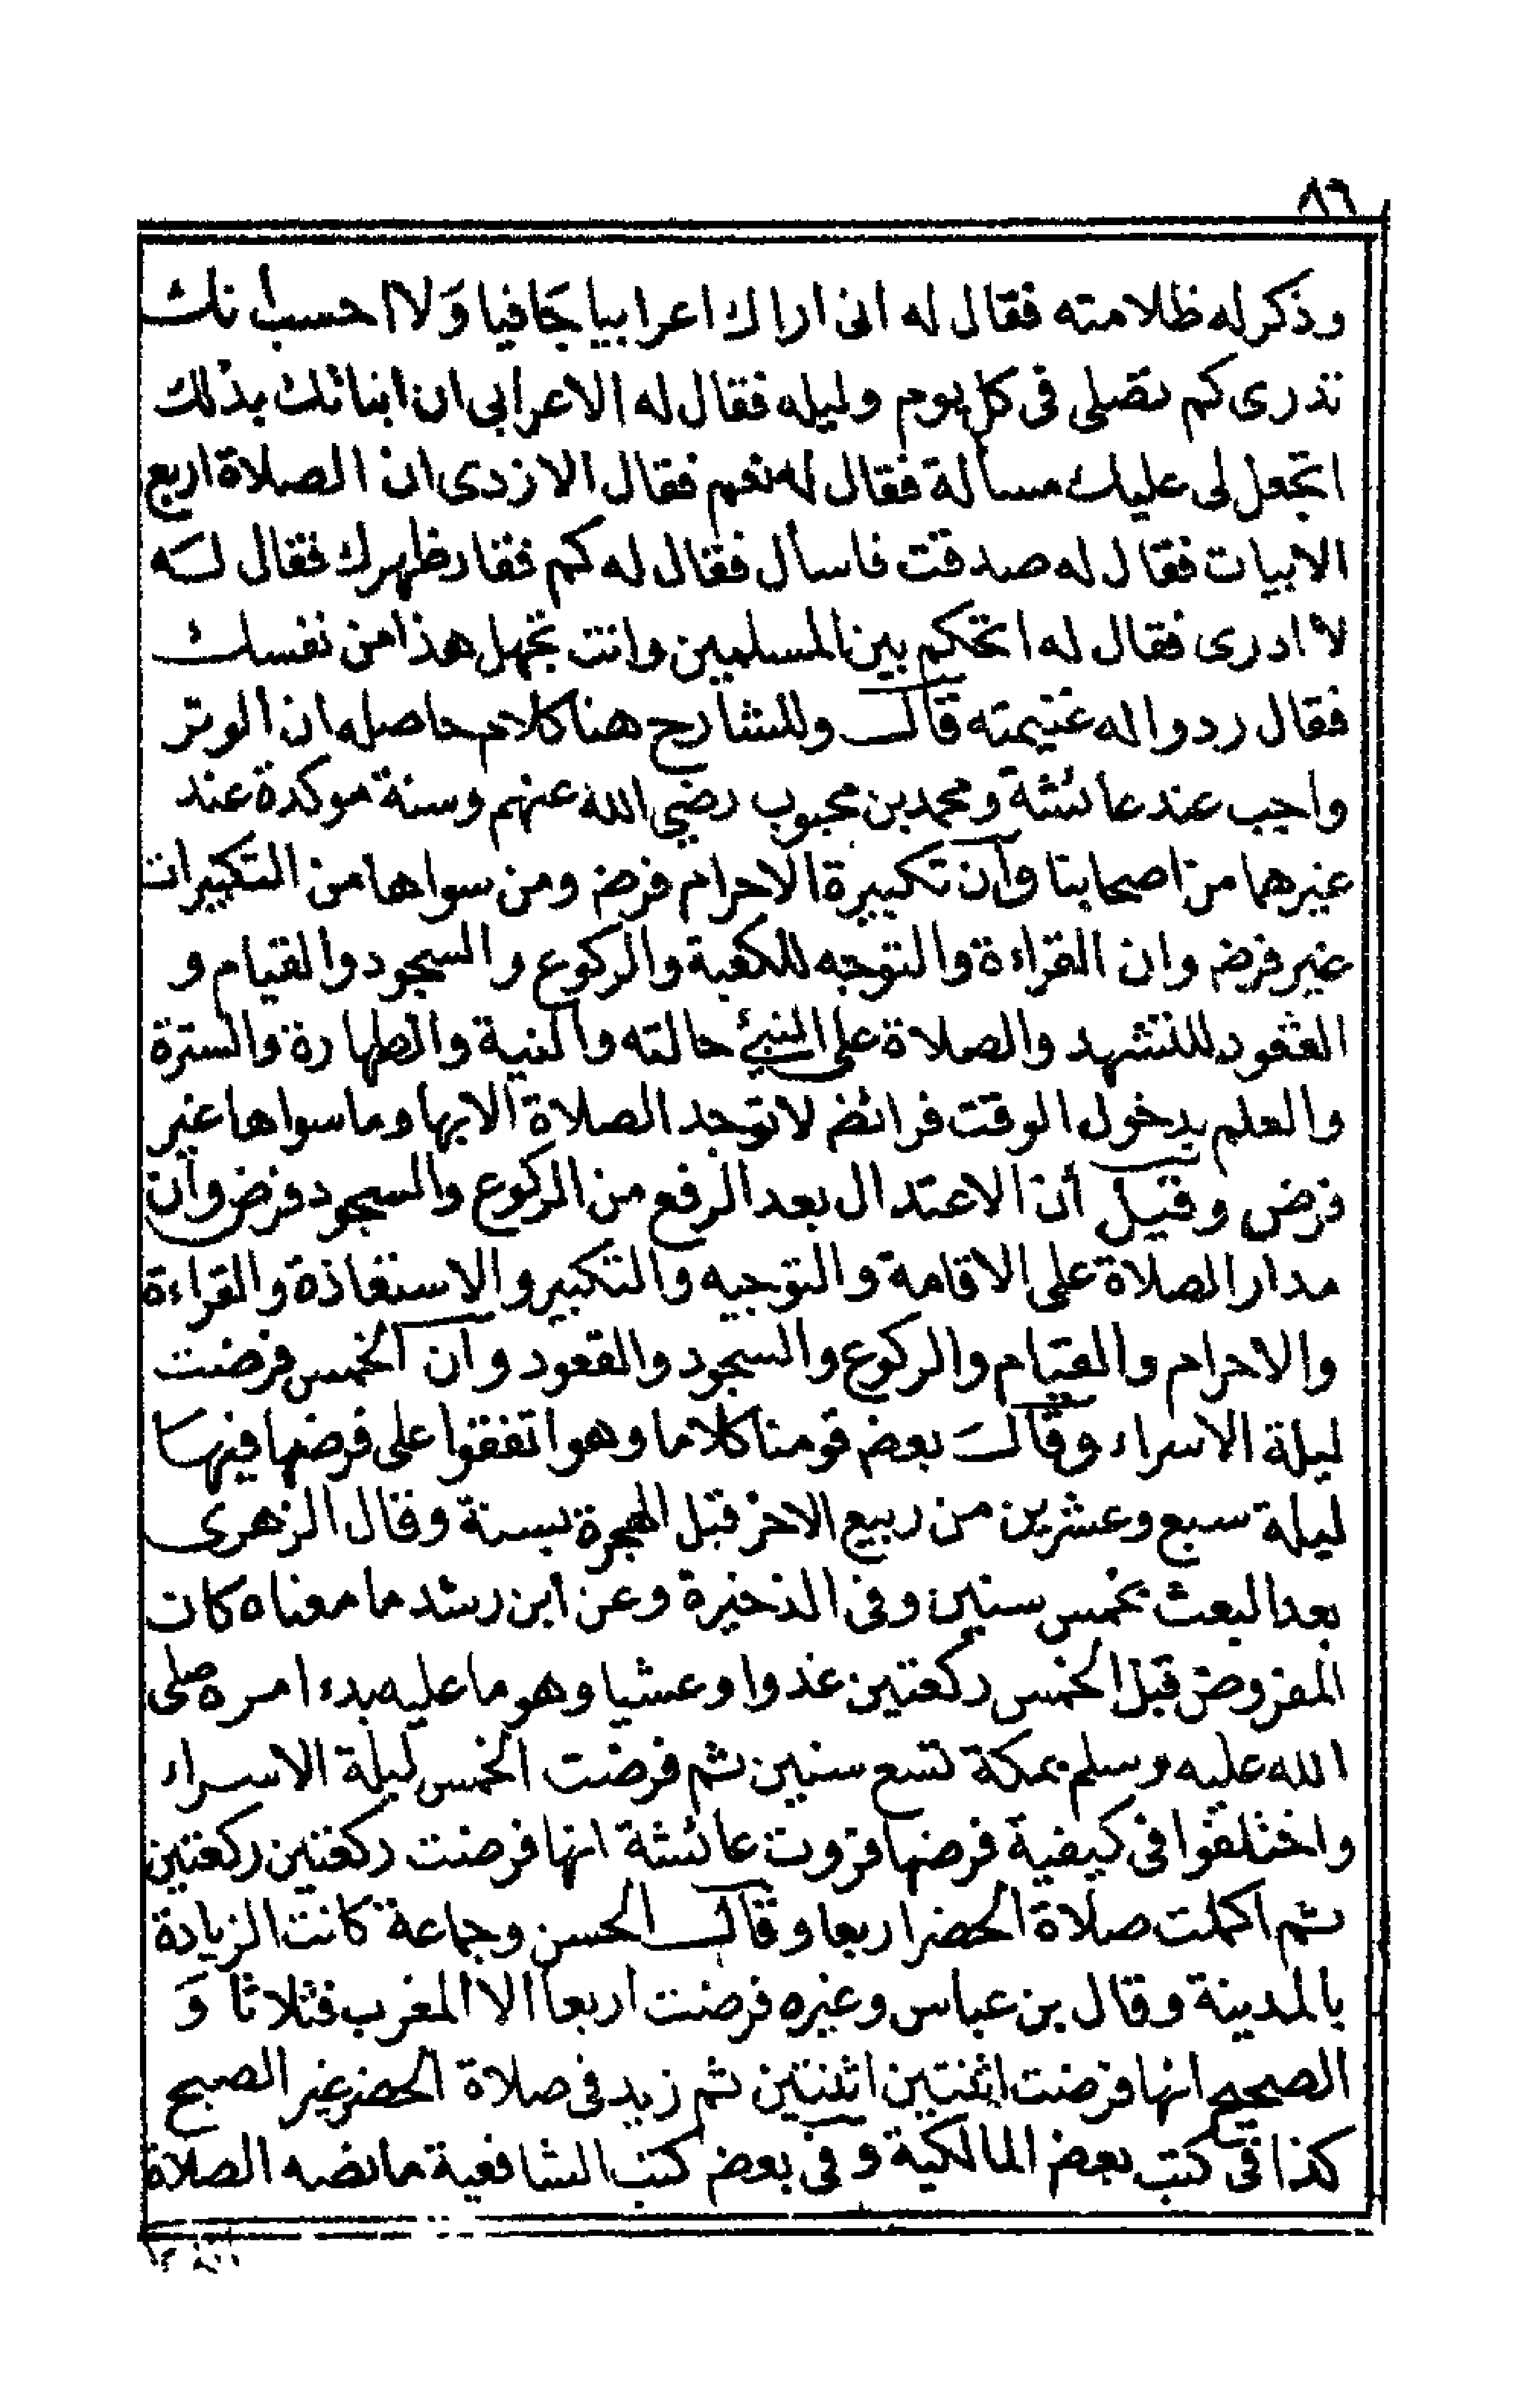 ٨٦
وذكر له ظلامته فقال له انى اراك اعرابيا جَافيا وَلا احسب أنك
تدرى كم تصلى فى كل يوم وليله فقال له الاعرابى ان انبأتك بذلك
اتجعل لى عليك مسألة فقال له نعم فقال الازدى ان الصلاة اربع
الابيات فقال له صدقت فاسأل فقال له كم فقار ظهرك فقال لسَه
لا ادرى فقال له اتحكم بين المسلمين وانت تجهل هذا من نفسك
فقال ردوا له غنيمته قال وللشارح هنا كلام حاصله ان الوتر
واجب عند عائشة ومحمد بن محبوب رضي الله عنهم وسنة موكدة عند
غيرهما من اصحابنا وان تكبيرة الاحرام فرض ومن سواها من التكبيرات
غير فرض وان القراءة والتوجه للكعبة والركوع والسجود والقيام و
القعود للتشهد والصلاة على النبئ حالته والنية والطهارة والسترة
والعلم بدخول الوقت فرائض لا توجد الصلاة الا بها وما سواها غير
فرض وقيل أن الاعتدال بعد الرفع من الركوع والسجود فرض وان
مدار الصلاة على الاقامة والتوجيه والتكبير والاستعاذة والقراءة
والاحرام والقيام والركوع والسجود والقعود وان الخمس فرضت
ليلة الاسراء وقال بعض قومنا كلاما وهو اتفقوا على فرضها فيها
ليلة سبع وعشرين من ربيع الاخر قبل الهجرة بسنة وقال الزهرى
بعد البعث بخمس سنين وفى الذخيرة وعن ابن رشد ما معناه كان
المفروض قبل الخمس ركعتين غدوا وعشيا وهو ما عليه بدء امره صلى
الله عليه وسلم بمكة تسع سنين ثم فرضت الخمس ليلة الاسراء
واختلفوا فى كيفية فرضها فروت عائشة انها فرضت ركعتين ركعتين
ثم اكملت صلاة الحضر اربعا وقال الحسن وجماعة كانت الزيادة
بالمدينة وقال بن عباس وغيره فرضت اربعا الا المغرب فثلاثا وَ
الصحيح انها فرضت اثنتين اثنتين ثم زيد فى صلاة الحضر غير الصبح
كذا فى كتب بعض المالكية وفى بعض كتب الشافعية ما نصه الصلاة